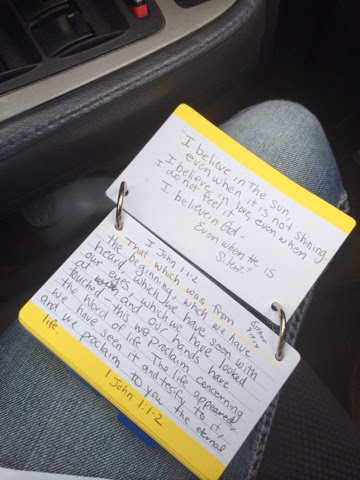 I believe in the sun
even when it is not shining.
I believe in love, even when
I do not feel it
I believe in God -
Even when He is
Silent!!
I John 1:1-2
That which was from
the beginning, which we have
heard, which we have seen with
our eyes, which we have looked
at and our hands have
touched - this we proclaim concerning
the word of life. The life appeared,
we have seen it and testify to it,
and we proclaim to you the eternal
life.
1 John 1:1-2